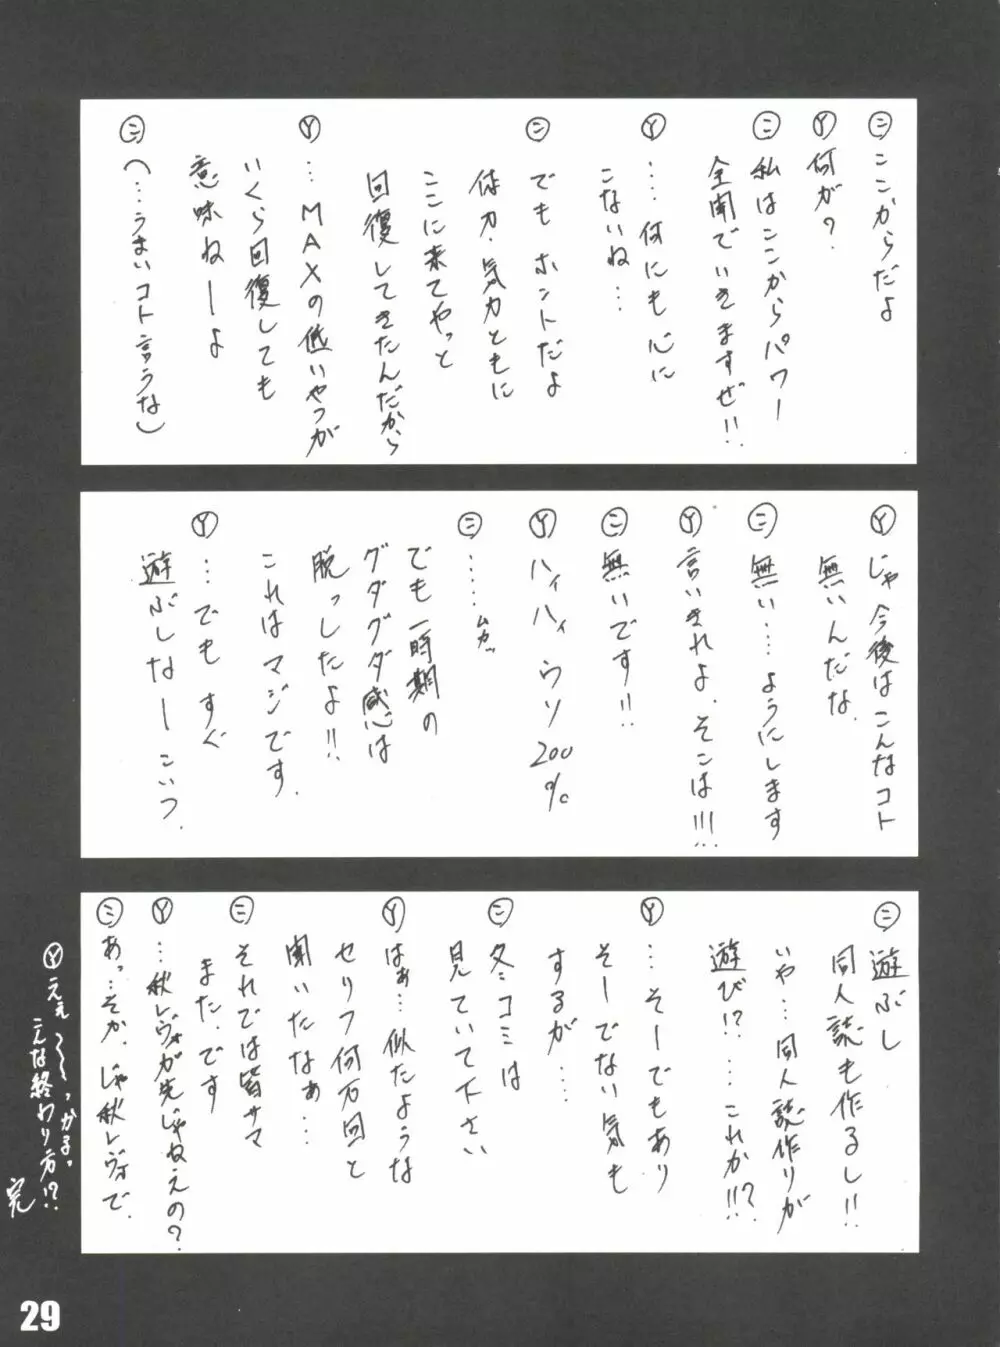 ニ ここからだよ
Y 何が?
ニ 私はここからパワー
全開でいきますぜ!!
Y ‥‥何にも心に
こないね‥‥
ニ でもホントだよ
体力・気力ともに
ここに来てやっと
回復してきたんだから
Y …MAXの低いやつが
いくら回復しても
意味ねーよ
ニ (…うまいコト言うな)
Y じゃ今後はこんなコト
無いんだな.
ニ 無い‥‥ようにします
Y 言いきれよ.そこは!!!
ニ 無いです!!
Y ハイハイ ウソ200%
ニ ……ムカッ
でも一時期の
グダグダ感は
脱っしたよ!!
これはマジです.
Y …でもすぐ
遊ぶしなーこいつ.
ニ 遊ぶし
同人誌も作るし!!
いや…同人誌作りが
遊び!?‥‥これか!!?
Y …そーでもあり
そーでない気も
するが‥‥
ニ 冬コミは
見ていて下さい
Y はぁ…似たような
セリフ何万回と
聞いたなぁ…
ニ それでは皆サマ
また.です
Y …秋レヴォが先じゃねえの?
ニ あっ…そか.じゃ秋レヴォで.
Y ええ〜〜っかるっ
こんな終わり方!?
完
29